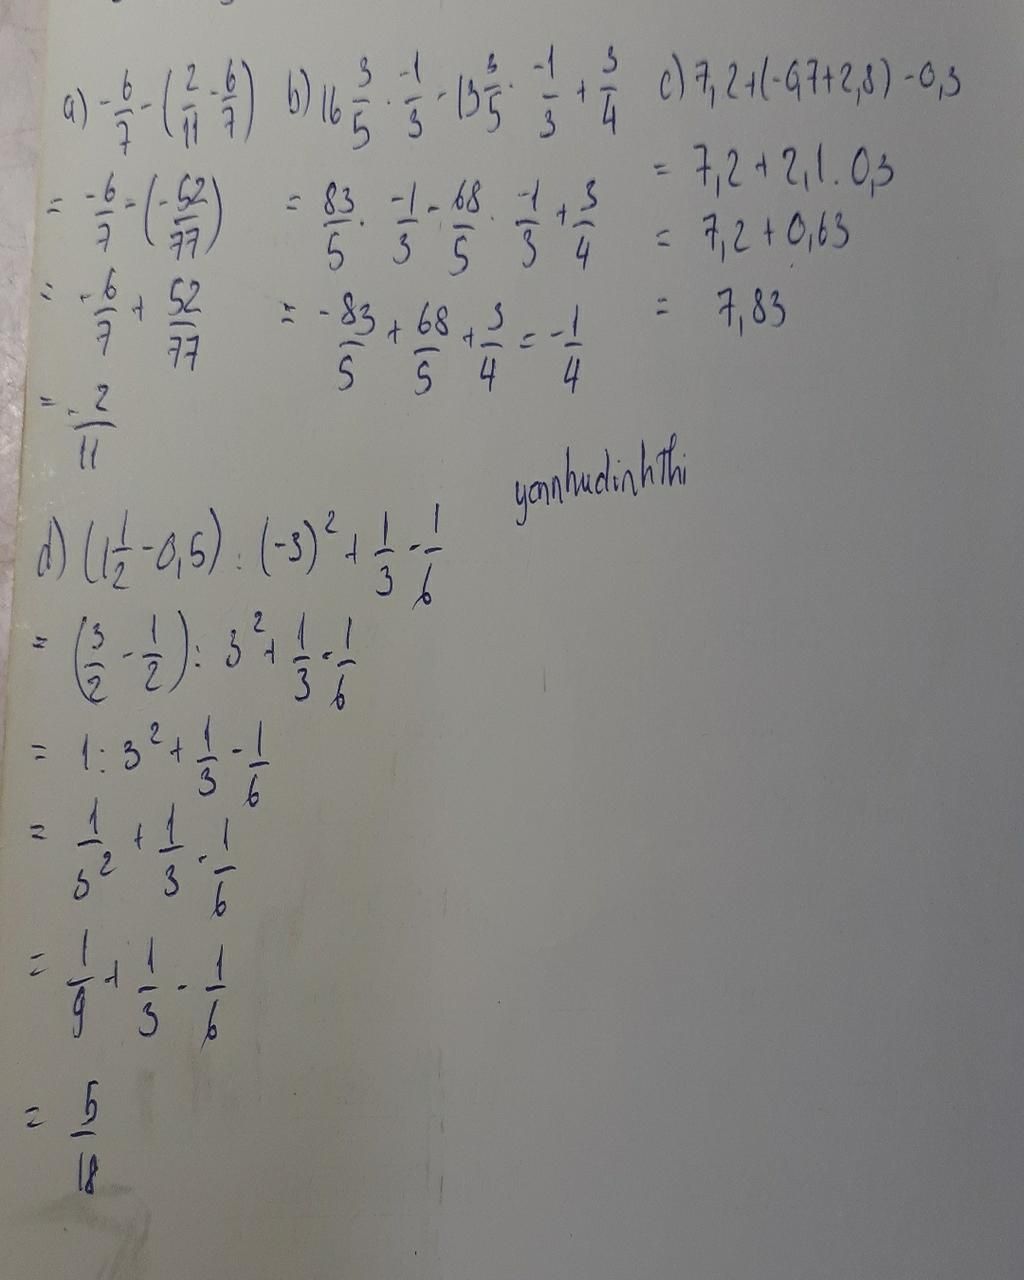 a) -6/7 - (2/11 - 6/7)
= -6/7 - (-52/77)
= -6/7 + 52/77
= -2/11
b) 16 3/5 . -1/3 - 13 3/5 . -1/3 + 3/4
= 83/5 . -1/3 - 68/5 . -1/3 + 3/4
= -83/5 + 68/5 + 3/4 = -1/4
c) 7,2+(-0,7+2,8) -0,3
= 7,2 + 2,1 . 0,3
= 7,2 + 0,63
= 7,83
yonnhudinhthi
d) (1 1/2 - 0,5) : (-3)² + 1/3 - 1/6
= (3/2 - 1/2) : 3² + 1/3 - 1/6
= 1 : 3² + 1/3 - 1/6
= 1/3² + 1/3 - 1/6
= 1/9 + 1/3 - 1/6
= 5/18